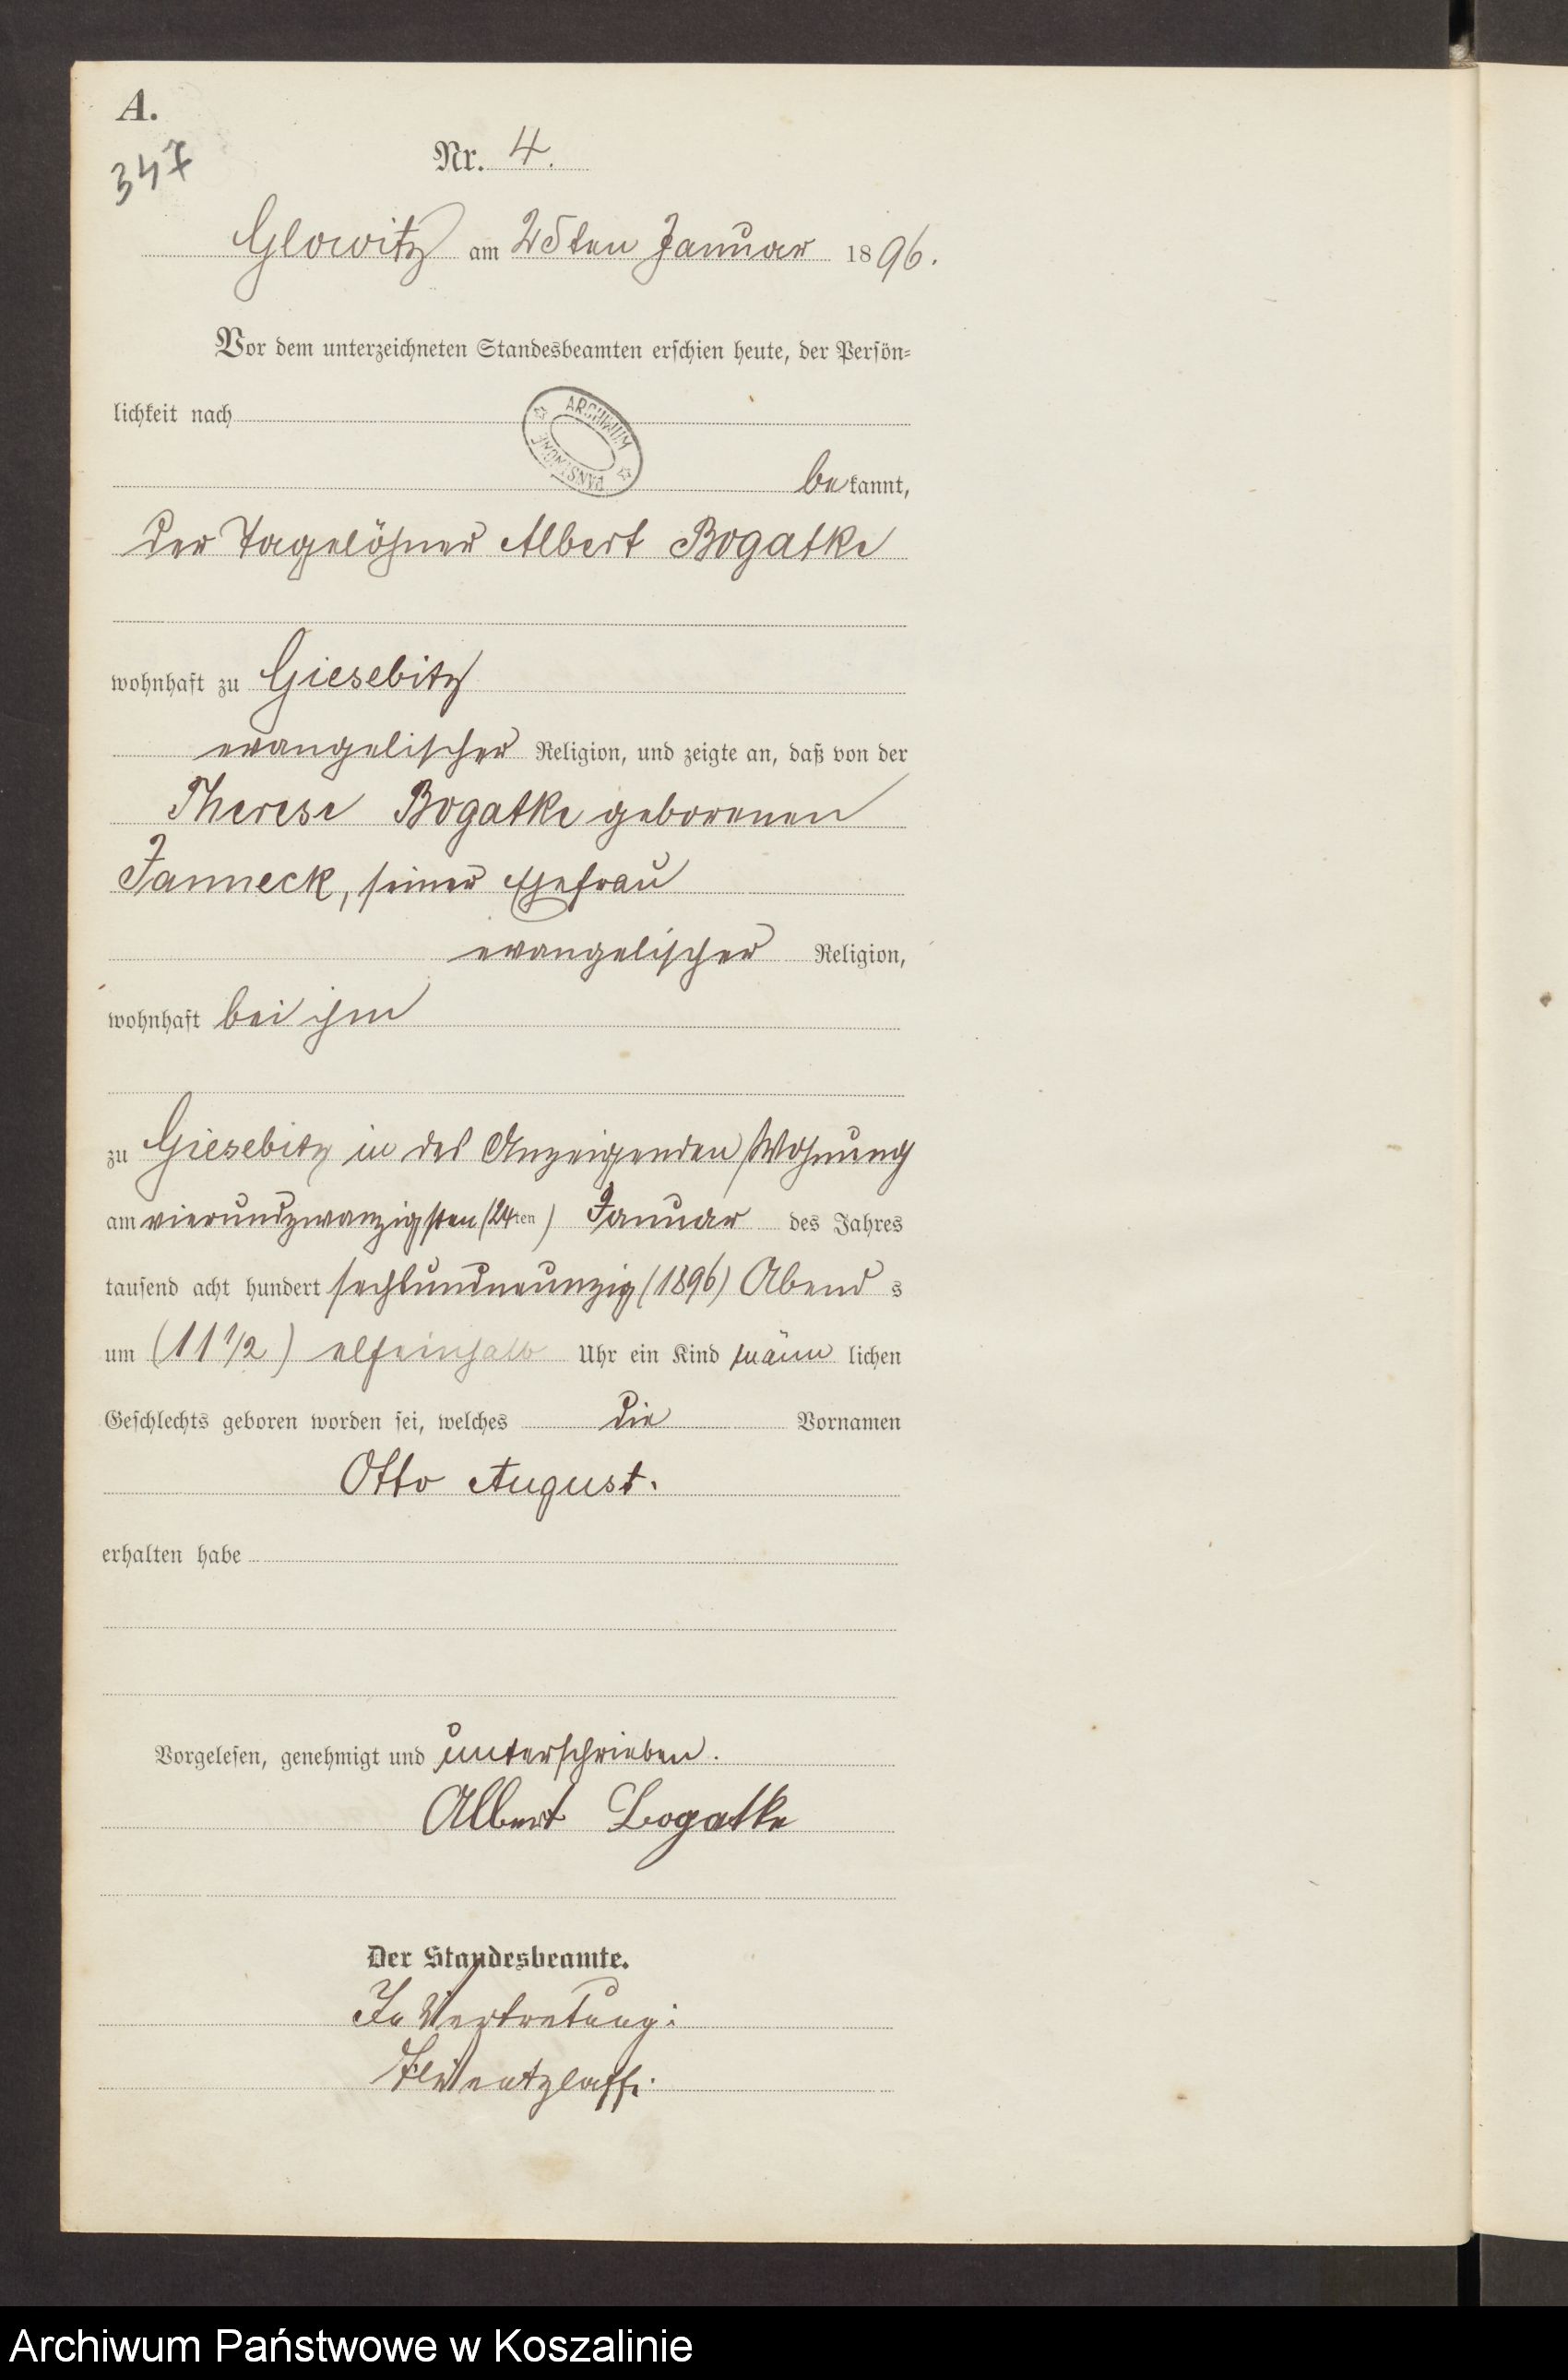 A.
347
Nr. 4.
Glowitz am 25ten Januar 1896.
Vor dem unterzeichneten Standesbeamten erschien heute, der Persön-
lichkeit nach
ARCHIWUM PAŃSTWOWE
bekannt,
der Tagelöhner Albert Bogatke
wohnhaft zu Giesebitz
evangelischer Religion, und zeigte an, daß von der
Therese Bogatke geborenen
Janneck, seiner Ehefrau
evangelischer Religion,
wohnhaft bei ihm
zu Giesebitz in des Anzeigenden Wohnung
am vierundzwanzigsten (24ten) Januar des Jahres
tausend acht hundert sechsundneunzig (1896) Abends
um (11 1/2) elfeinhalb Uhr ein Kind männlichen
Geschlechts geboren worden sei, welches die Vornamen
Otto August.
erhalten habe
Vorgelesen, genehmigt und unterschrieben.
Albert Bogatke
Der Standesbeamte.
In Vertretung:
Archiwum Państwowe w Koszalinie